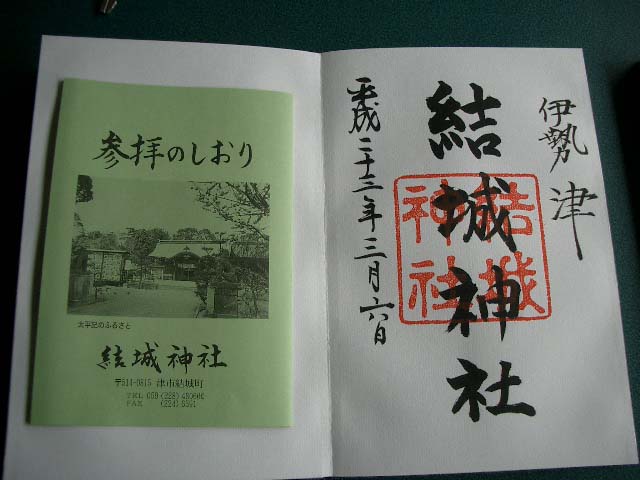 参拝のしおり
太平記のふるさと
結城神社
〒514-0815 津市結城町
TEL 059 (228) 4806㈹
FAX (224) 5591
伊勢 津
結城神社
結城神社
平成二十三年三月六日